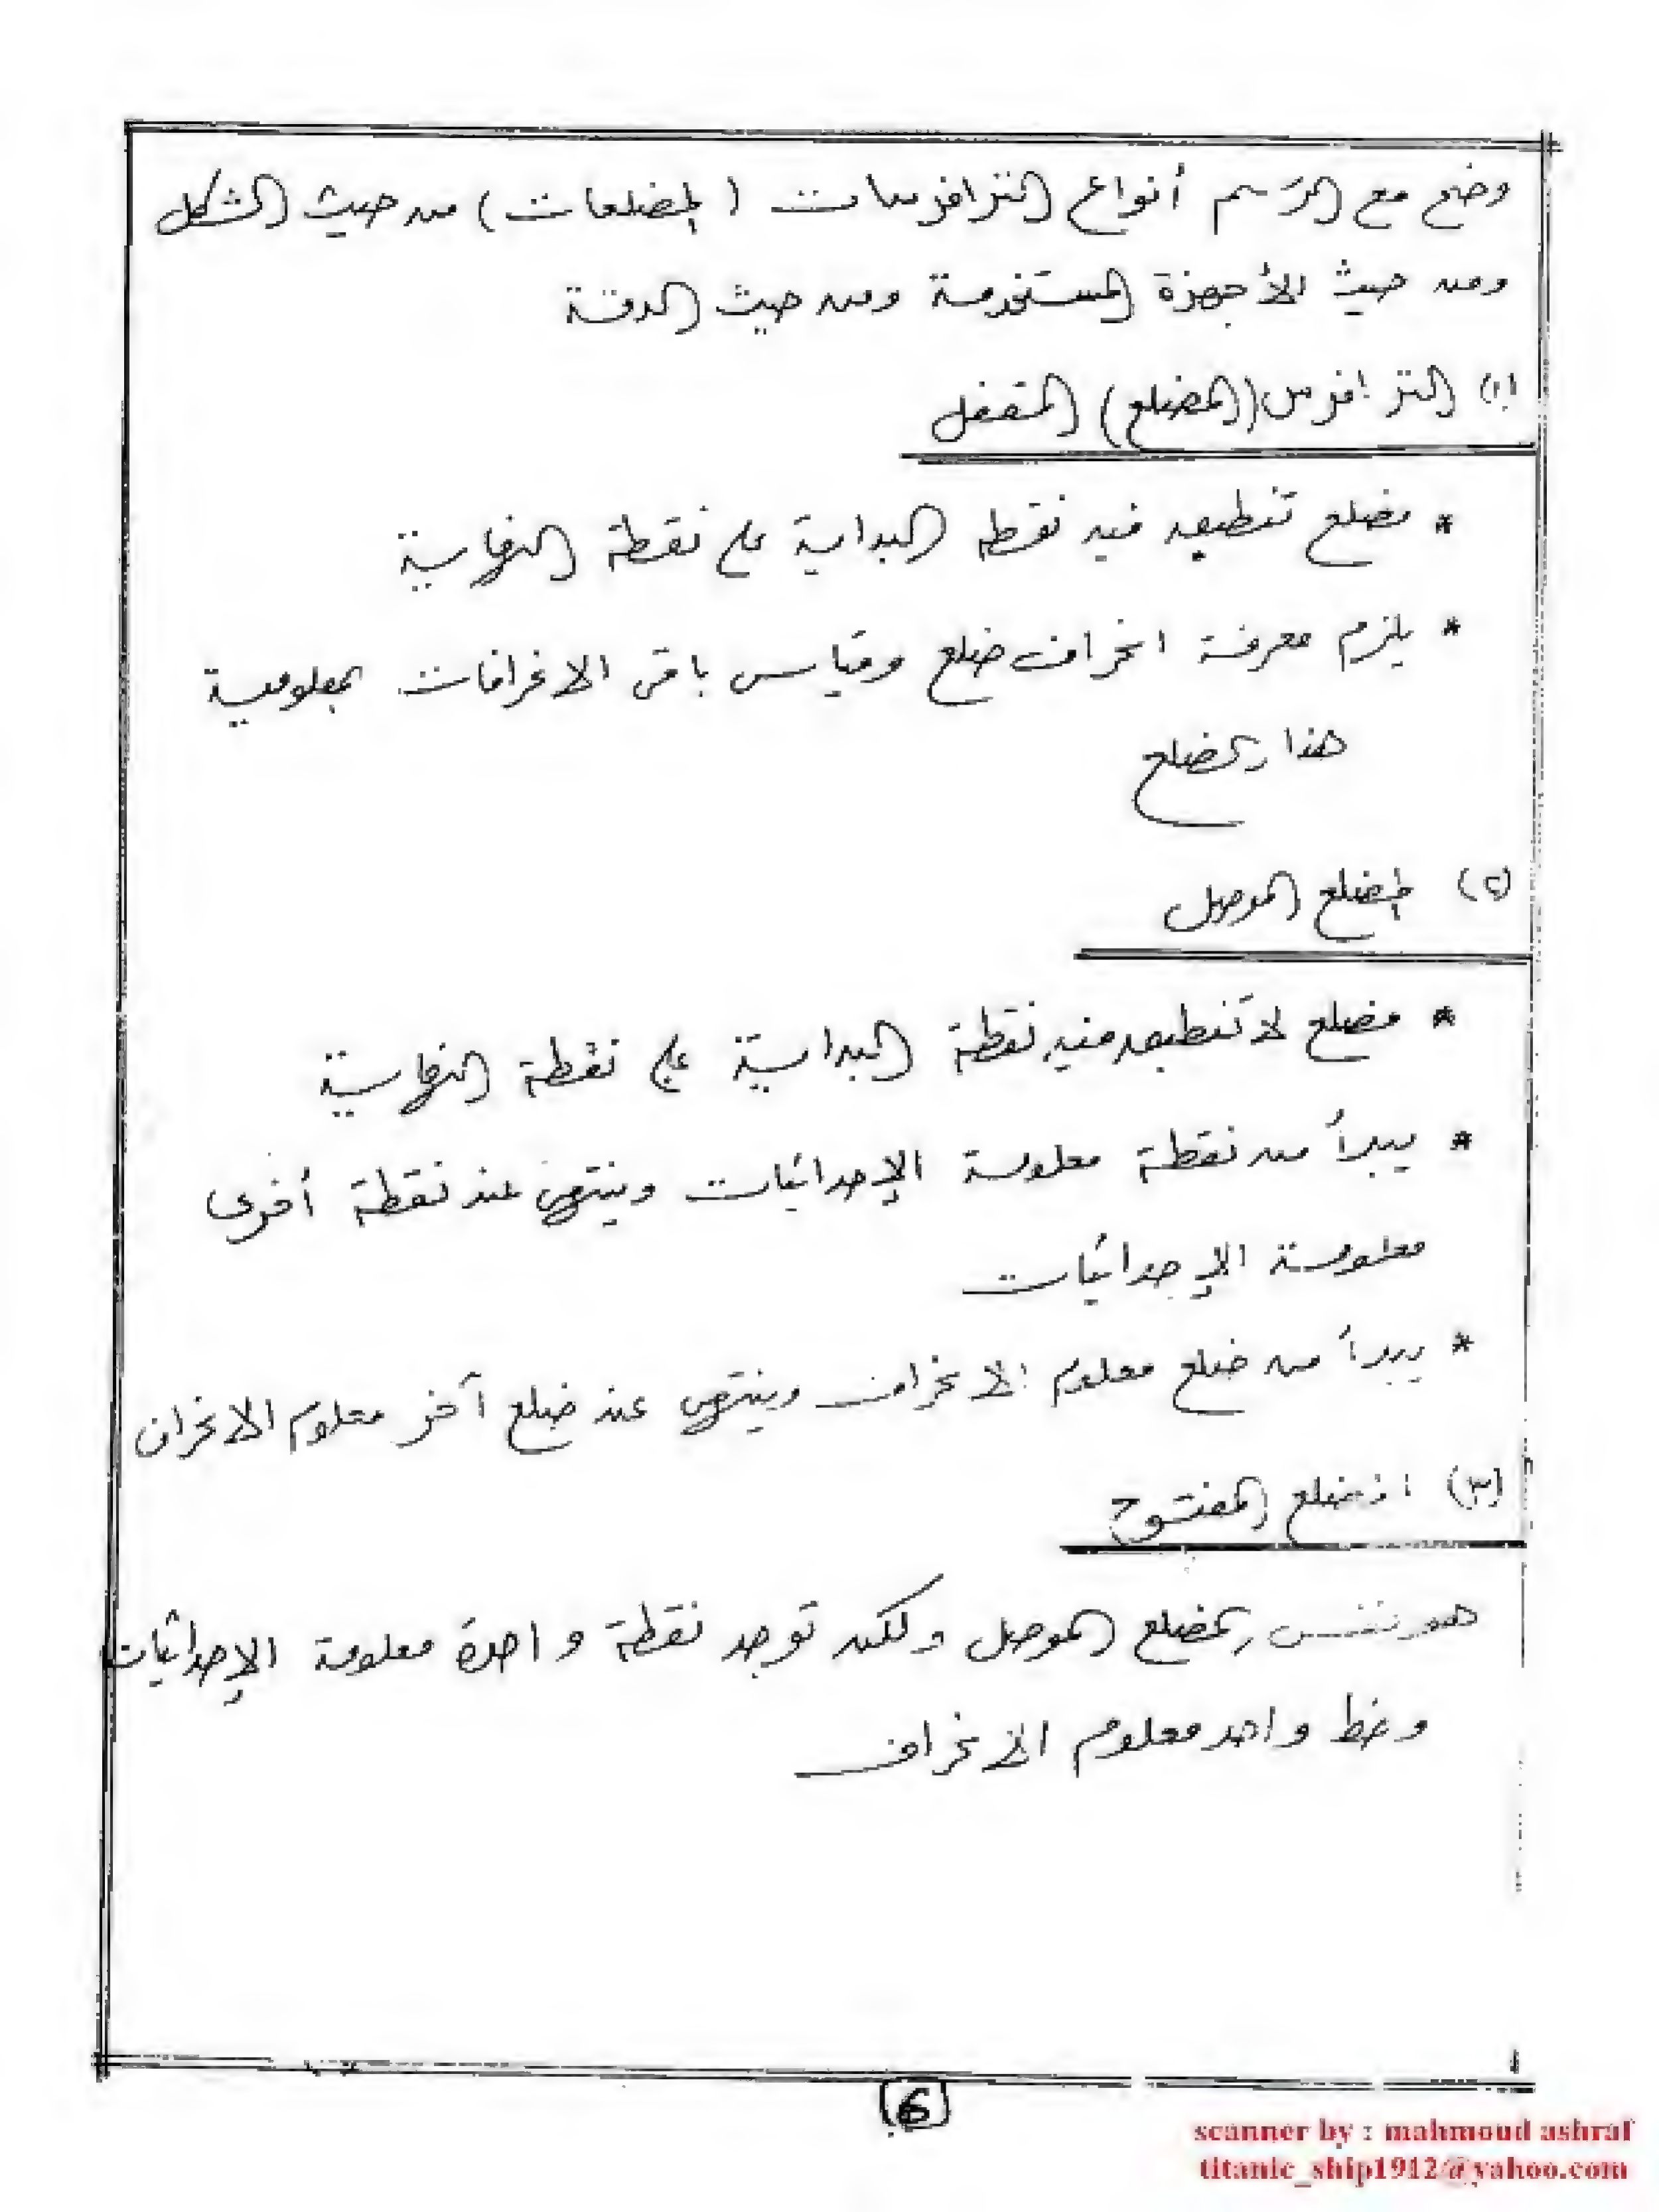 وضح مع الرسم أنواع الترافرسات (المضلعات) من حيث الشكل
ومن حيث الأجهزة المستخدمة ومن حيث الدقة
(١) الترافرس (المضلع) المقفل
* مضلع تنطبق فيه نقطة البداية على نقطة النهاية
* يلزم معرفة انحراف ضلع وقياس باقى الانحرافات بمعلومية
هذا الضلع
(٢) المضلع الموصل
* مضلع لا تنطبق فيه نقطة البداية على نقطة النهاية
* يبدأ من نقطة معلومة الإحداثيات وينتهى عند نقطة أخرى
معلومة الإحداثيات
* يبدأ من ضلع معلوم الانحراف وينتهى عند ضلع آخر معلوم الانحراف
(٣) المضلع المفتوح
هو نفس المضلع الموصل ولكن توجد نقطة واحدة معلومة الإحداثيات
وخط واحد معلوم الانحراف
6
scanner by : mahmoud ashraf
titanic_ship1912@yahoo.com